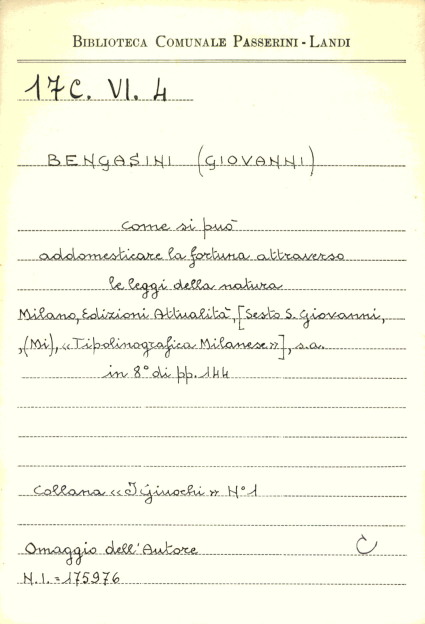 BIBLIOTECA COMUNALE PASSERINI - LANDI
17C. VI. 4
BENGASINI (GIOVANNI)
come si può
addomesticare la fortuna attraverso
le leggi della natura
Milano, Edizioni Attualità, [Sesto S. Giovanni,
,(Mi), «Tipolinografica Milanese»], s.a.
in 8° di pp. 144
Collana «I Giuochi» N° 1
Omaggio dell'Autore C
N.I. = 175976